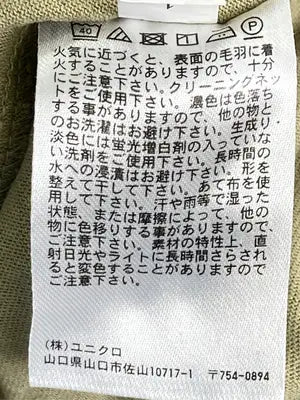 40
火気に近づくと、表面の毛羽に着
火することがありますので、十分
ご注意下さい。クリーニングネッ
トをご使用下さい。濃色は色落ち
する事がありますので、他の物と
のお洗濯はお避け下さい。生成り・
淡色には蛍光増白剤の入っていな
い洗剤をご使用下さい。長時間の
水への浸漬はお避け下さい。形を
整えて干して下さい。あて布を使
用して下さい。汗や雨等で湿った
状態、または摩擦によって、他の
物に色移りする事がありますので、
ご注意下さい。素材の特性上、直
射日光やライトに長時間さらされ
ると変色することがあります。
(株)ユニクロ
山口県山口市佐山10717-1 〒754-0894